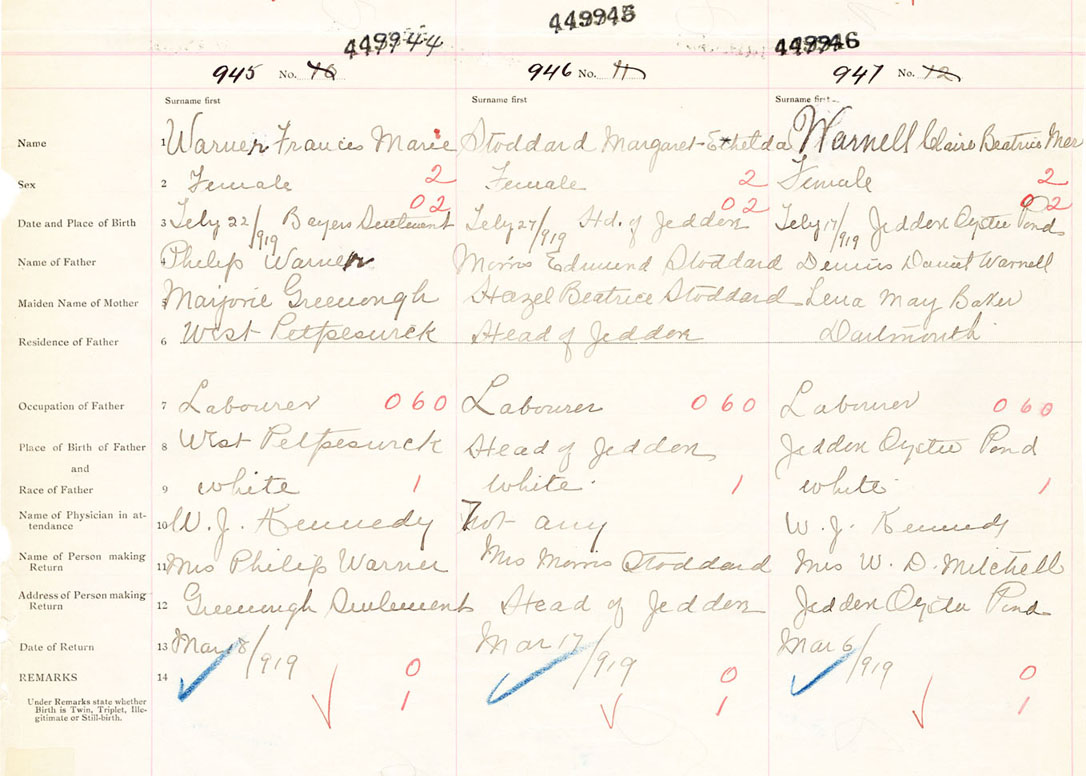 449944 449945 449946
945 No. 10 946 No. 11 947 No. 12
Surname first Surname first Surname first
Name 1 Warner Francis Marie Stoddard Margaret Ethelda Warnell Claire Beatrice Mae
Sex 2 Female 2 Female 2 Female 2
02 02 02
Date and Place of Birth 3 Feby 22/919 Bayers Seulement Feby 27/919 Hd. of Jeddon Feby 17/919 Jeddon Oyster Pond
Name of Father 4 Philip Warner Morris Edmund Stoddard Dennis Daniel Warnell
Maiden Name of Mother 5 Marjorie Greenough Hazel Beatrice Stoddard Lena May Baker
Residence of Father 6 West Petpeswick Head of Jeddon Dartmouth
Occupation of Father 7 Labourer 060 Labourer 060 Labourer 060
Place of Birth of Father 8 West Petpeswick Head of Jeddon Jeddon Oyster Pond
and
Race of Father 9 white 1 white 1 white 1
Name of Physician in attendance 10 W. J. Kennedy Not any W. J. Kennedy
Name of Person making Return 11 Mrs Philip Warner Mrs Morris Stoddard Mrs W. D. Mitchell
Address of Person making Return 12 Greenough Seulement Head of Jeddon Jeddon Oyster Pond
Date of Return 13 Mar 8/919 Mar 17/919 Mar 6/919
REMARKS 14 0 0 0
Under Remarks state whether
Birth is Twin, Triplet, Illegitimate or Still-birth. 1 1 1